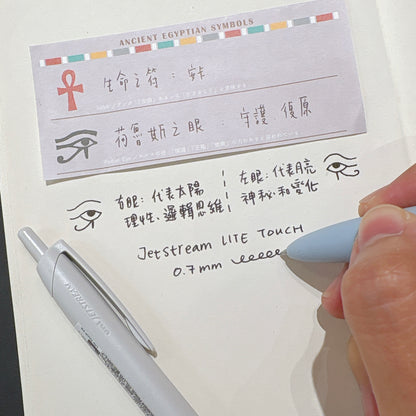 ANCIENT EGYPTIAN SYMBOLS
生命之符：安卡
荷魯斯之眼：守護 復原
右眼：代表太陽
理性、邏輯思維
左眼：代表月亮
神秘、和變化
Jetstream LITE TOUCH
0.7mm
JETSTREAM